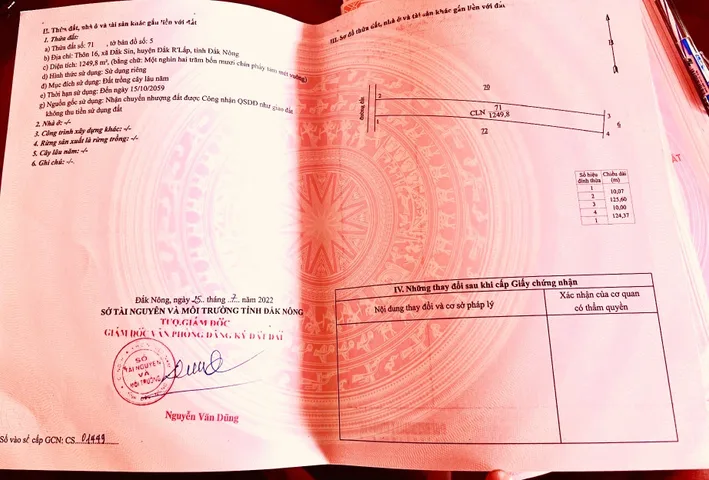 II. Thửa đất, nhà ở và tài sản khác gắn liền với đất
1. Thửa đất:
a) Thửa đất số: 71 , tờ bản đồ số: 5
b) Địa chỉ: Thôn 16, xã Đắk Sin, huyện Đắk R'Lấp, tỉnh Đắk Nông
c) Diện tích: 1249,8 m², (bằng chữ: Một nghìn hai trăm bốn mươi chín phẩy tám mét vuông)
d) Hình thức sử dụng: Sử dụng riêng
đ) Mục đích sử dụng: Đất trồng cây lâu năm
e) Thời hạn sử dụng: Đến ngày 15/10/2059
g) Nguồn gốc sử dụng: Nhận chuyển nhượng đất được Công nhận QSDĐ như giao đất
không thu tiền sử dụng đất
2. Nhà ở: -/-
3. Công trình xây dựng khác: -/-
4. Rừng sản xuất là rừng trồng: -/-
5. Cây lâu năm: -/-
6. Ghi chú: -/-
Đắk Nông, ngày 25 tháng 7 năm 2022
SỞ TÀI NGUYÊN VÀ MÔI TRƯỜNG TỈNH ĐẮK NÔNG
TUQ.GIÁM ĐỐC
GIÁM ĐỐC VĂN PHÒNG ĐĂNG KÝ ĐẤT ĐAI
SỞ
TÀI NGUYÊN
VÀ
MÔI TRƯỜNG
Nguyễn Văn Dũng
Số vào sổ cấp GCN: CS 01449
III. Sơ đồ thửa đất, nhà ở và tài sản khác gắn liền với đất
B
70
đường đất
2
71
3
CLN
1249,8
6
1
72
4
Số hiệu đỉnh thửa
Chiều dài (m)
1
10,07
2
125,60
3
10,00
4
124,37
1
IV. Những thay đổi sau khi cấp Giấy chứng nhận
Nội dung thay đổi và cơ sở pháp lý
Xác nhận của cơ quan
có thẩm quyền